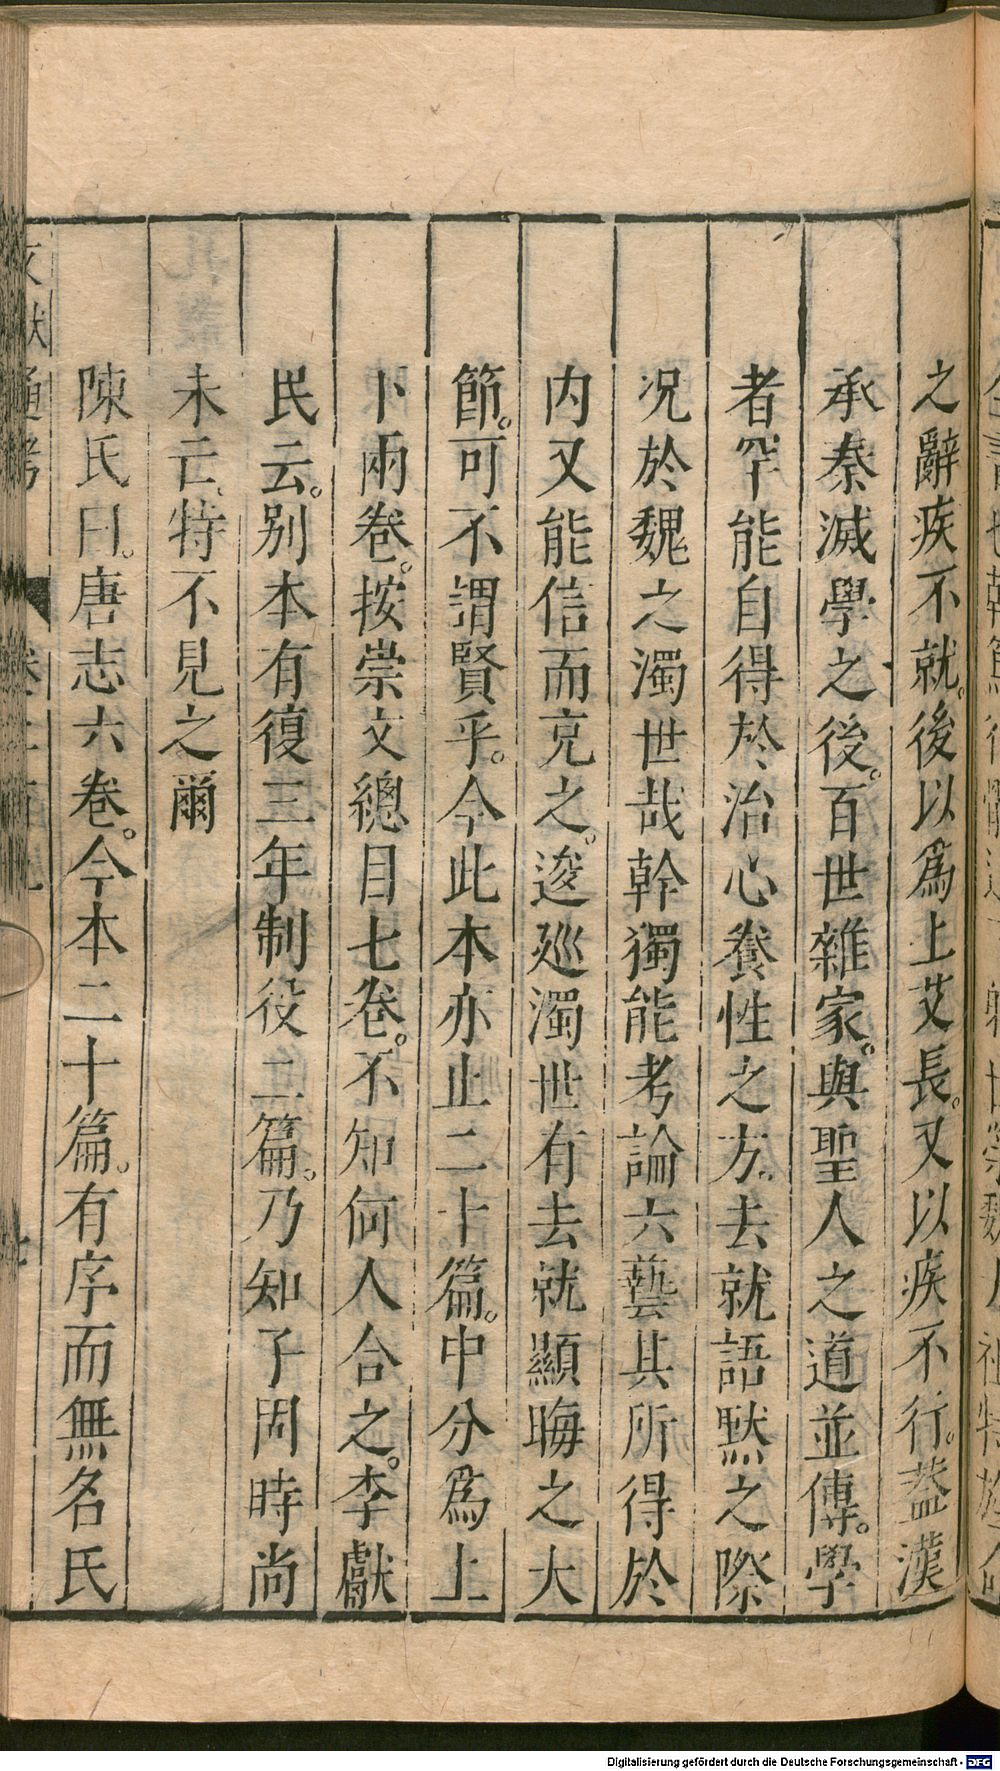 之辭疾不就。後以爲上艾長。又以疾不行。葢漢
承秦滅學之後。百世雜家。與聖人之道並傳。學
者罕能自得於治心養性之方。去就語黙之際
况於魏之濁世哉幹獨能考論六藝其所得於
内又能信而充之。逡廵濁世有去就顯晦之大
節。可不謂賢乎。今此本亦止二十篇。中分爲上
卜兩卷。按崇文總目七卷。不知何人合之。李獻
民云。别本有復三年制役二篇。乃知子固時尚
未亡。特不見之爾
陳氏曰。唐志六卷。今本二十篇。有序而無名氏
文獻通考
Digitalisierung gefördert durch die Deutsche Forschungsgemeinschaft - DFG